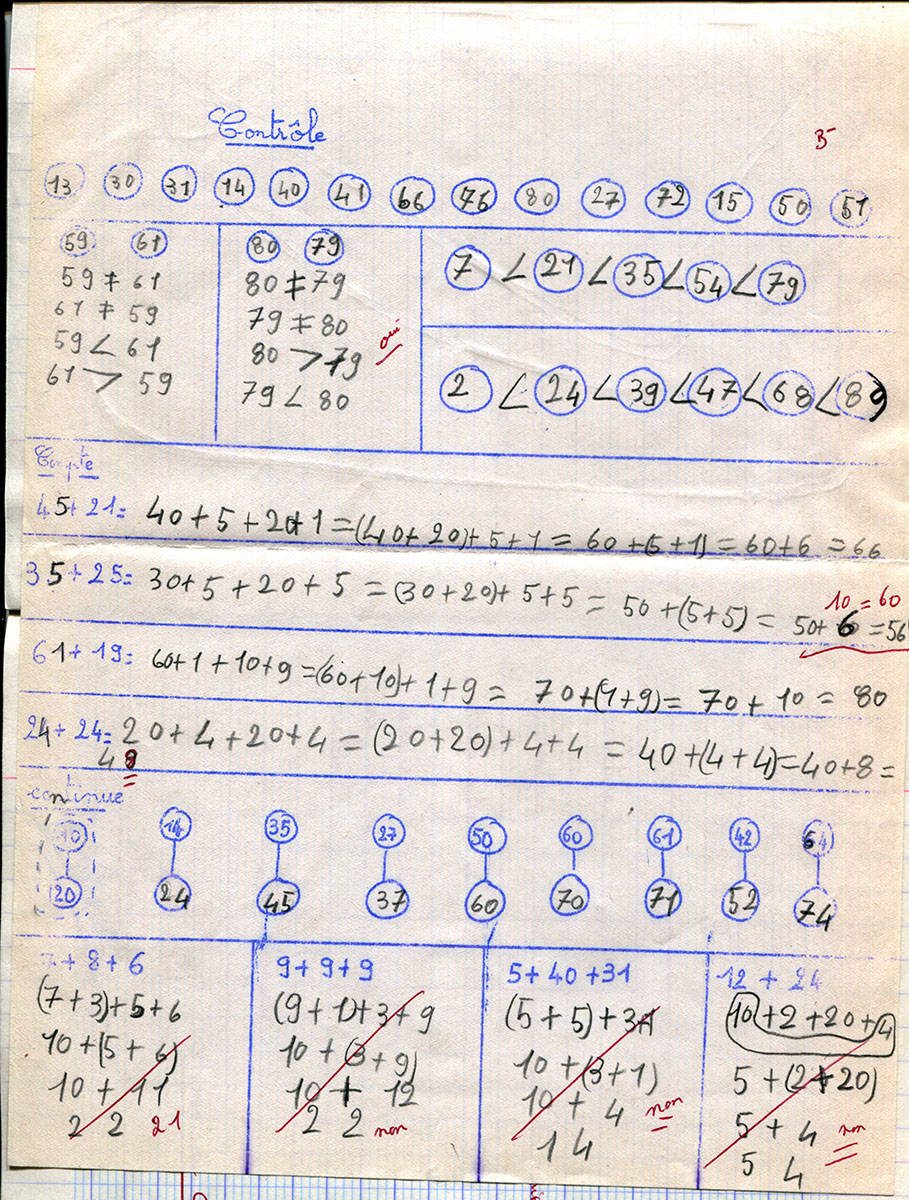 Contrôle
B-
13 30 31 14 40 41 66 76 80 27 72 15 50 51
59 61
59 ≠ 61
61 ≠ 59
59 < 61
61 > 59
80 79
80 ≠ 79
79 ≠ 80
80 > 79
oui
79 < 80
7 < 21 < 35 < 54 < 79
2 < 24 < 39 < 47 < 68 < 89
Compte
45+21= 40+5+20+1=(40+20)+5+1=60+(5+1)=60+6=66
35+25= 30+5+20+5=(30+20)+5+5=50+(5+5)=50+6=56
10=60
61+19= 60+1+10+9=(60+10)+1+9=70+(1+9)=70+10=80
24+24= 20+4+20+4=(20+20)+4+4=40+(4+4)=40+8=
48
continue
10 14 35 27 50 60 61 42 64
20 24 45 37 60 70 71 52 74
7+8+6
(7+3)+5+6
10+(5+6)
10+11
22 21
9+9+9
(9+1)+3+9
10+(3+9)
10+12
22 non
5+40+31
(5+5)+31
10+(3+1)
10+4 non
14
12+24
10+2+20+4
5+(2+20)
5+4 non
54